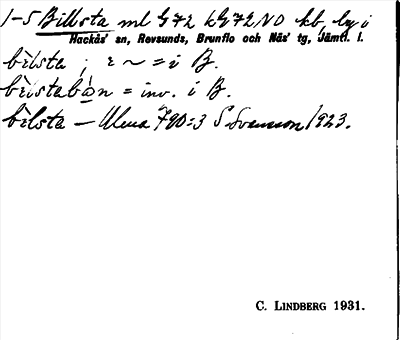 1-5 Billsta ml G72 kG72NO kb, by i
Hackås' sn, Revsunds, Brunflo och Näs' tg, Jämtl. l.
bilsta ; i ~ = i B.
bilstabon = inv. i B.
bilsta — Ulma 790:3 S Svensson 1923.
C. LINDBERG 1931.